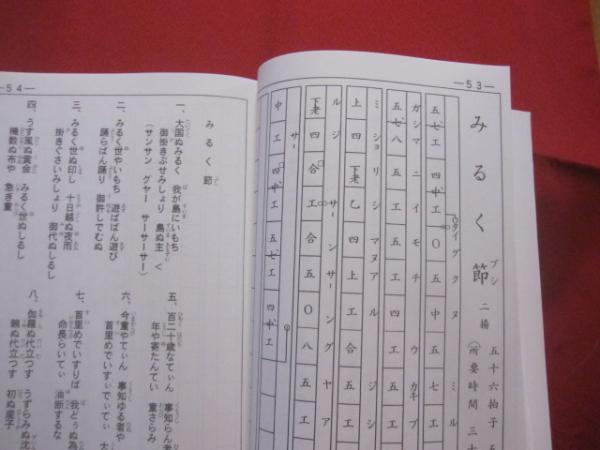 —53—
みるく節
ブシ
二揚
五十六拍子
(所要時間 三十
タイグクヌ ミル
五七工四中工〇五中五七工
ガシマニイモチ ウカキブ
五七八五五工四工五工
ミショリシマヌアル ジシ
上四下老乙四上工合五
ルジ サーサーングヤア
下老四合工合五〇八五工
サー
中工四中工五七工四中工
—54—
みるく節
一、大国ぬみるく 我が島にいもち
御掛きぶせみしょり 島ぬ主 く
(サンサン グヤー サーサーサー)
二、みるく世やいもち 遊ばばん遊び
踊らばん踊り 御許しでむぬ
三、みるく世ぬ印し 十日越ぬ夜雨
掛きぐさいみしょり 御代ぬしるし
四、うす風ぬ黄金 みるく世ぬしるし
機数ぬ布や 急ぎ童
五、百二十歳なてぃん 事知らん者
年や寄たんてい 童さらみ
六、今童やてぃん 事知ゆる者や
首里めでいすぃでぃてぃ 大
七、首里めでいすりば 我どぅぬ為
命長らいてぃ 油断するな
八、伽羅ぬ代立つす うすらみぬ沈
親ぬ代立つす 初ぬ産子